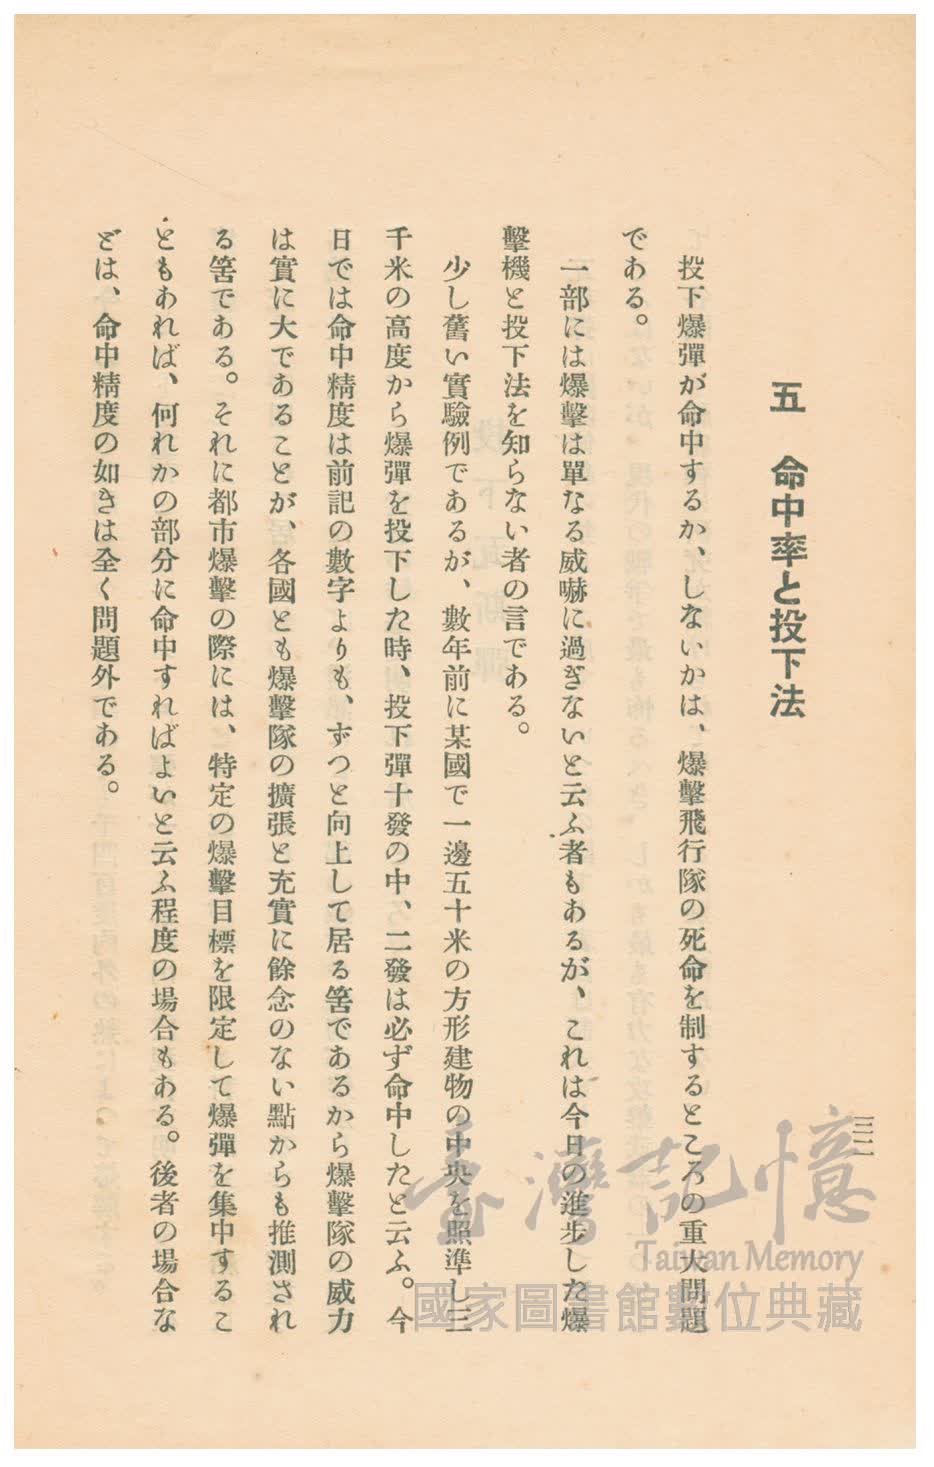 五　命中率と投下法
投下爆彈が命中するか、しないかは、爆擊飛行隊の死命を制するところの重大問題
である。
一部には爆擊は單なる威嚇に過ぎないと云ふ者もあるが、これは今日の進步した爆
擊機と投下法を知らない者の言である。
少し舊い實驗例であるが、數年前に某國で一邊五十米の方形建物の中央を照準し三
千米の高度から爆彈を投下した時、投下彈十發の中、二發は必ず命中したと云ふ。今
日では命中精度は前記の數字よりも、ずつと向上して居る筈であるから爆擊隊の威力
は實に大であることが、各國とも爆擊隊の擴張と充實に餘念のない點からも推測され
る筈である。それに都市爆擊の際には、特定の爆擊目標を限定して爆彈を集中するこ
ともあれば、何れかの部分に命中すればよいと云ふ程度の場合もある。後者の場合な
どは、命中精度の如きは全く問題外である。
三二
臺灣記憶
Taiwan Memory
國家圖書館數位典藏